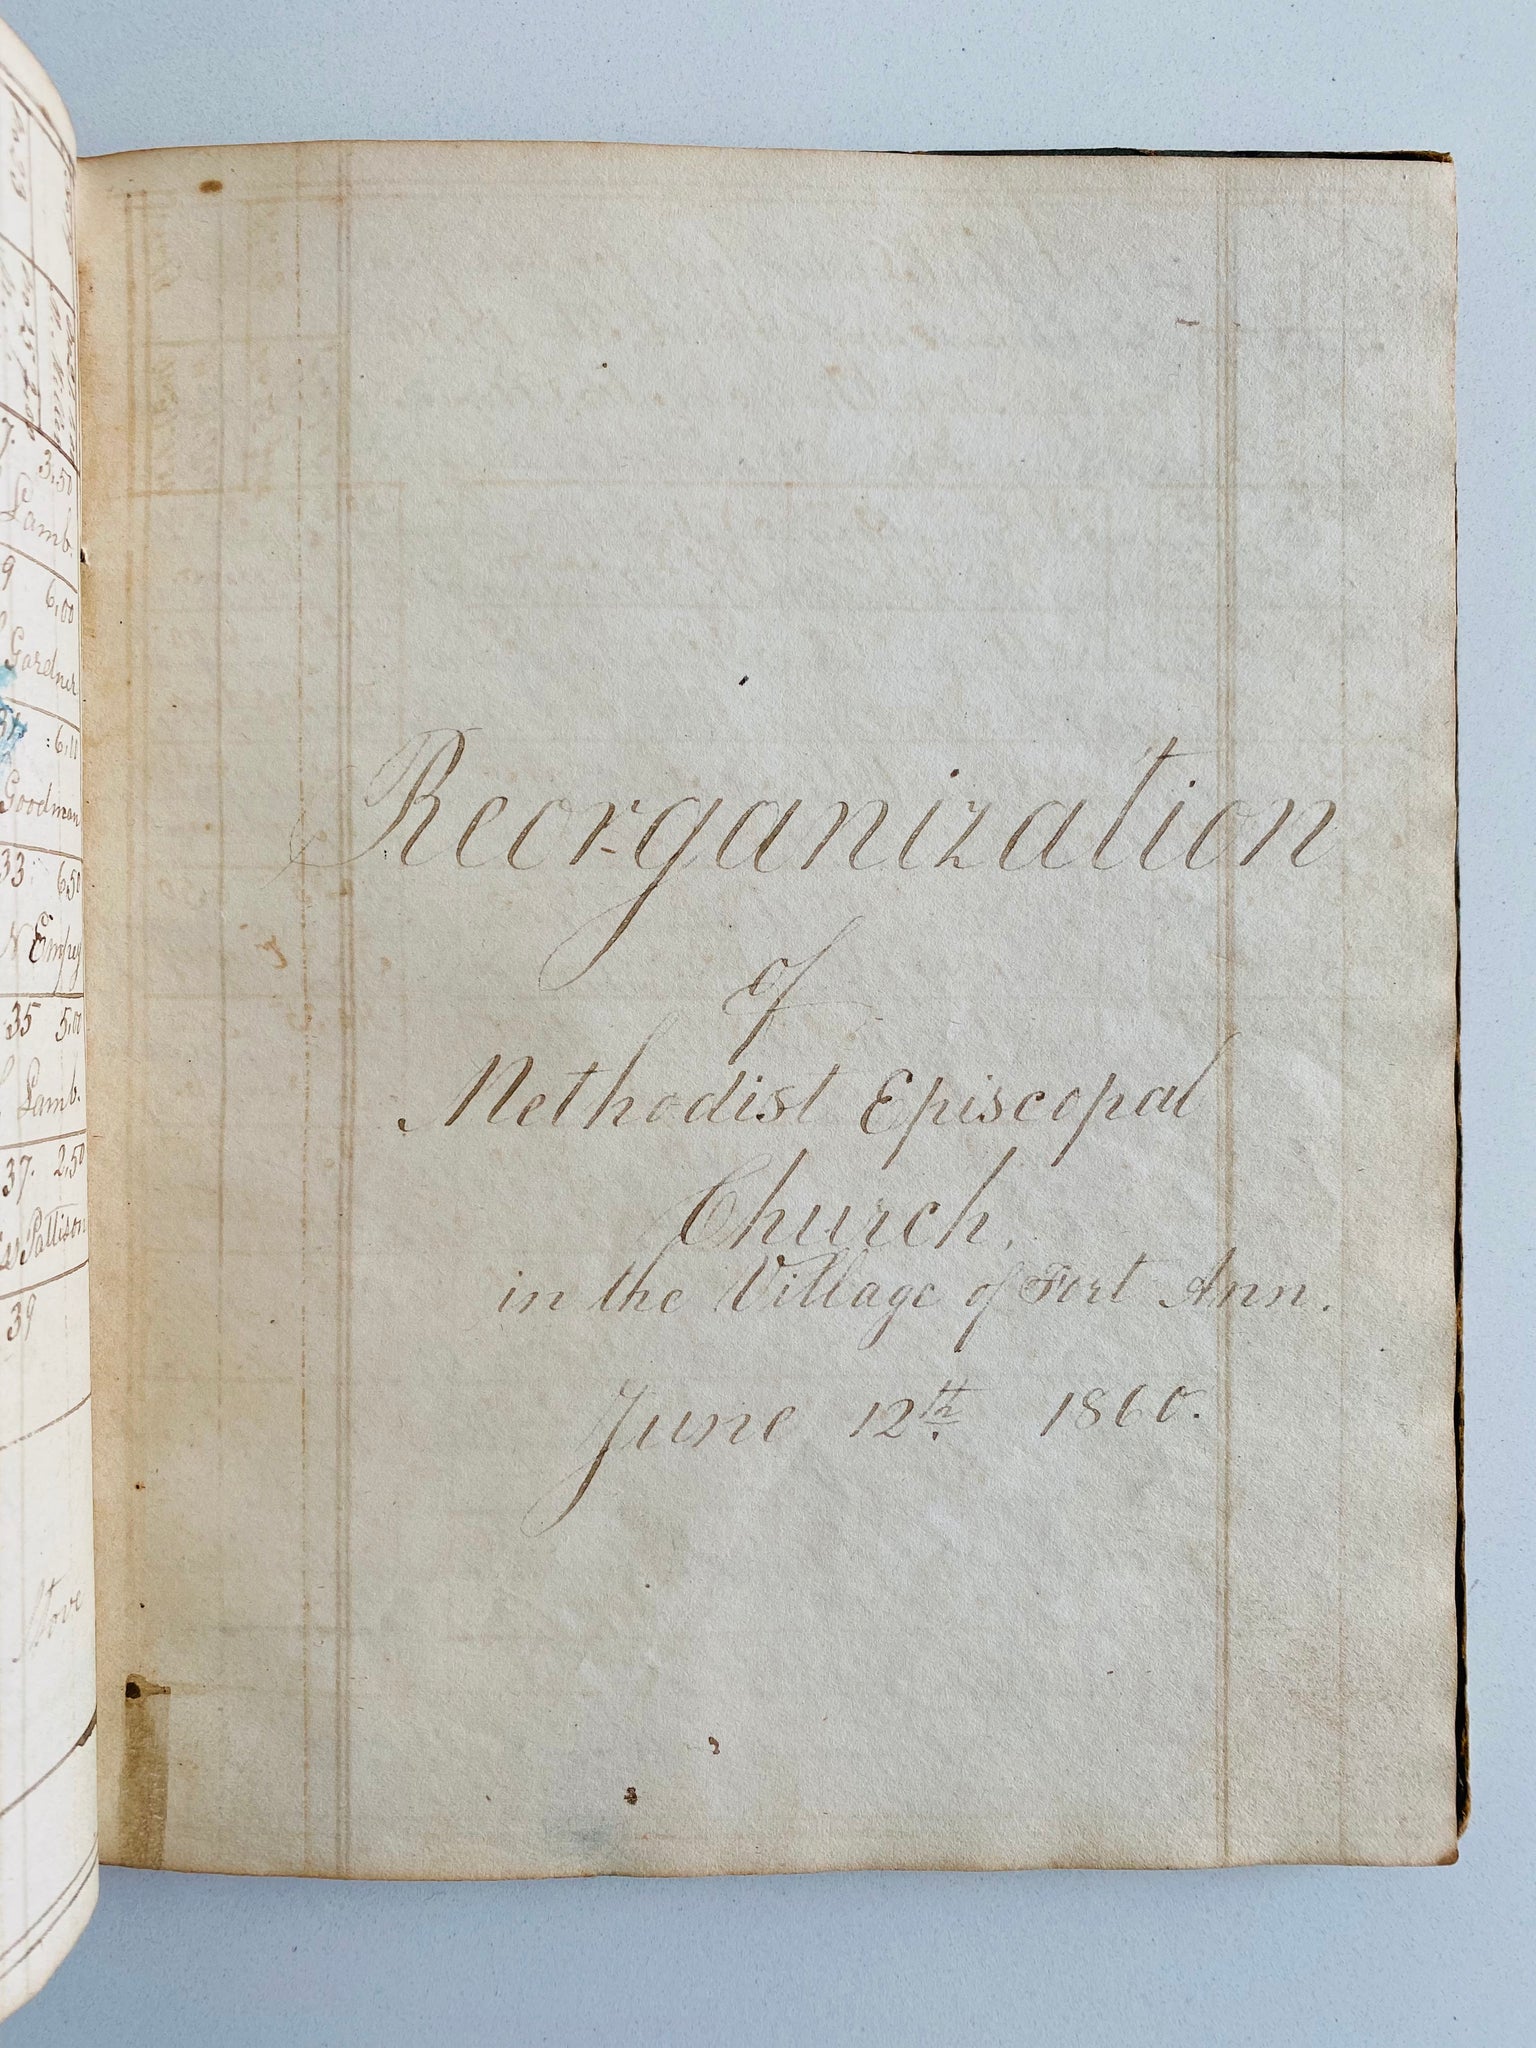 3,50
Lamb.
9 6,00
Gardner
6,11
Goodman
33 6,50
N Empey
35 5,00
Lamb.
37. 2,50
Pattison
39
Stove
Reorganization
of
Methodist Episcopal
Church,
in the Village of Fort Ann.
June 12th 1860.